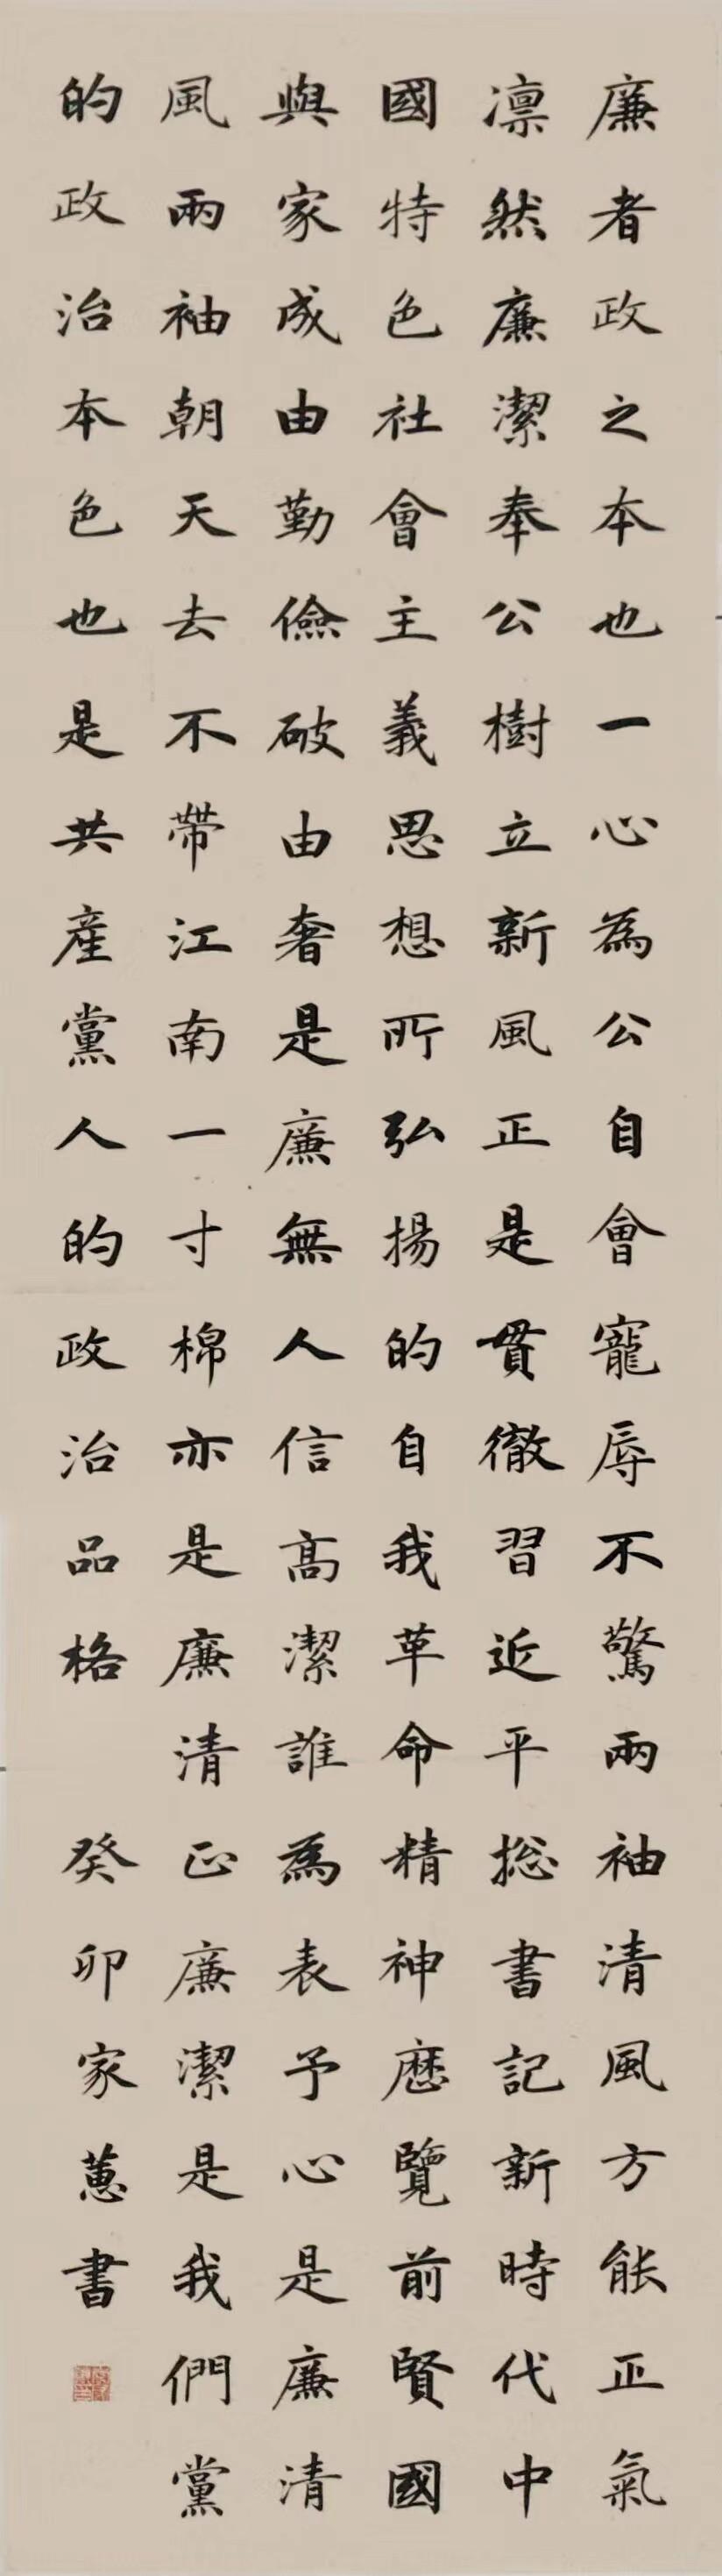 廉者政之本也一心為公自會寵辱不驚兩袖清風方能正氣
凛然廉潔奉公樹立新風正是貫徹習近平総書記新時代中
國特色社會主義思想所弘揚的自我革命精神歷覽前賢國
與家成由勤儉破由奢是廉無人信高潔誰為表予心是廉清
風兩袖朝天去不帶江南一寸棉亦是廉清正廉潔是我們黨
的政治本色也是共產黨人的政治品格 癸卯家蕙書